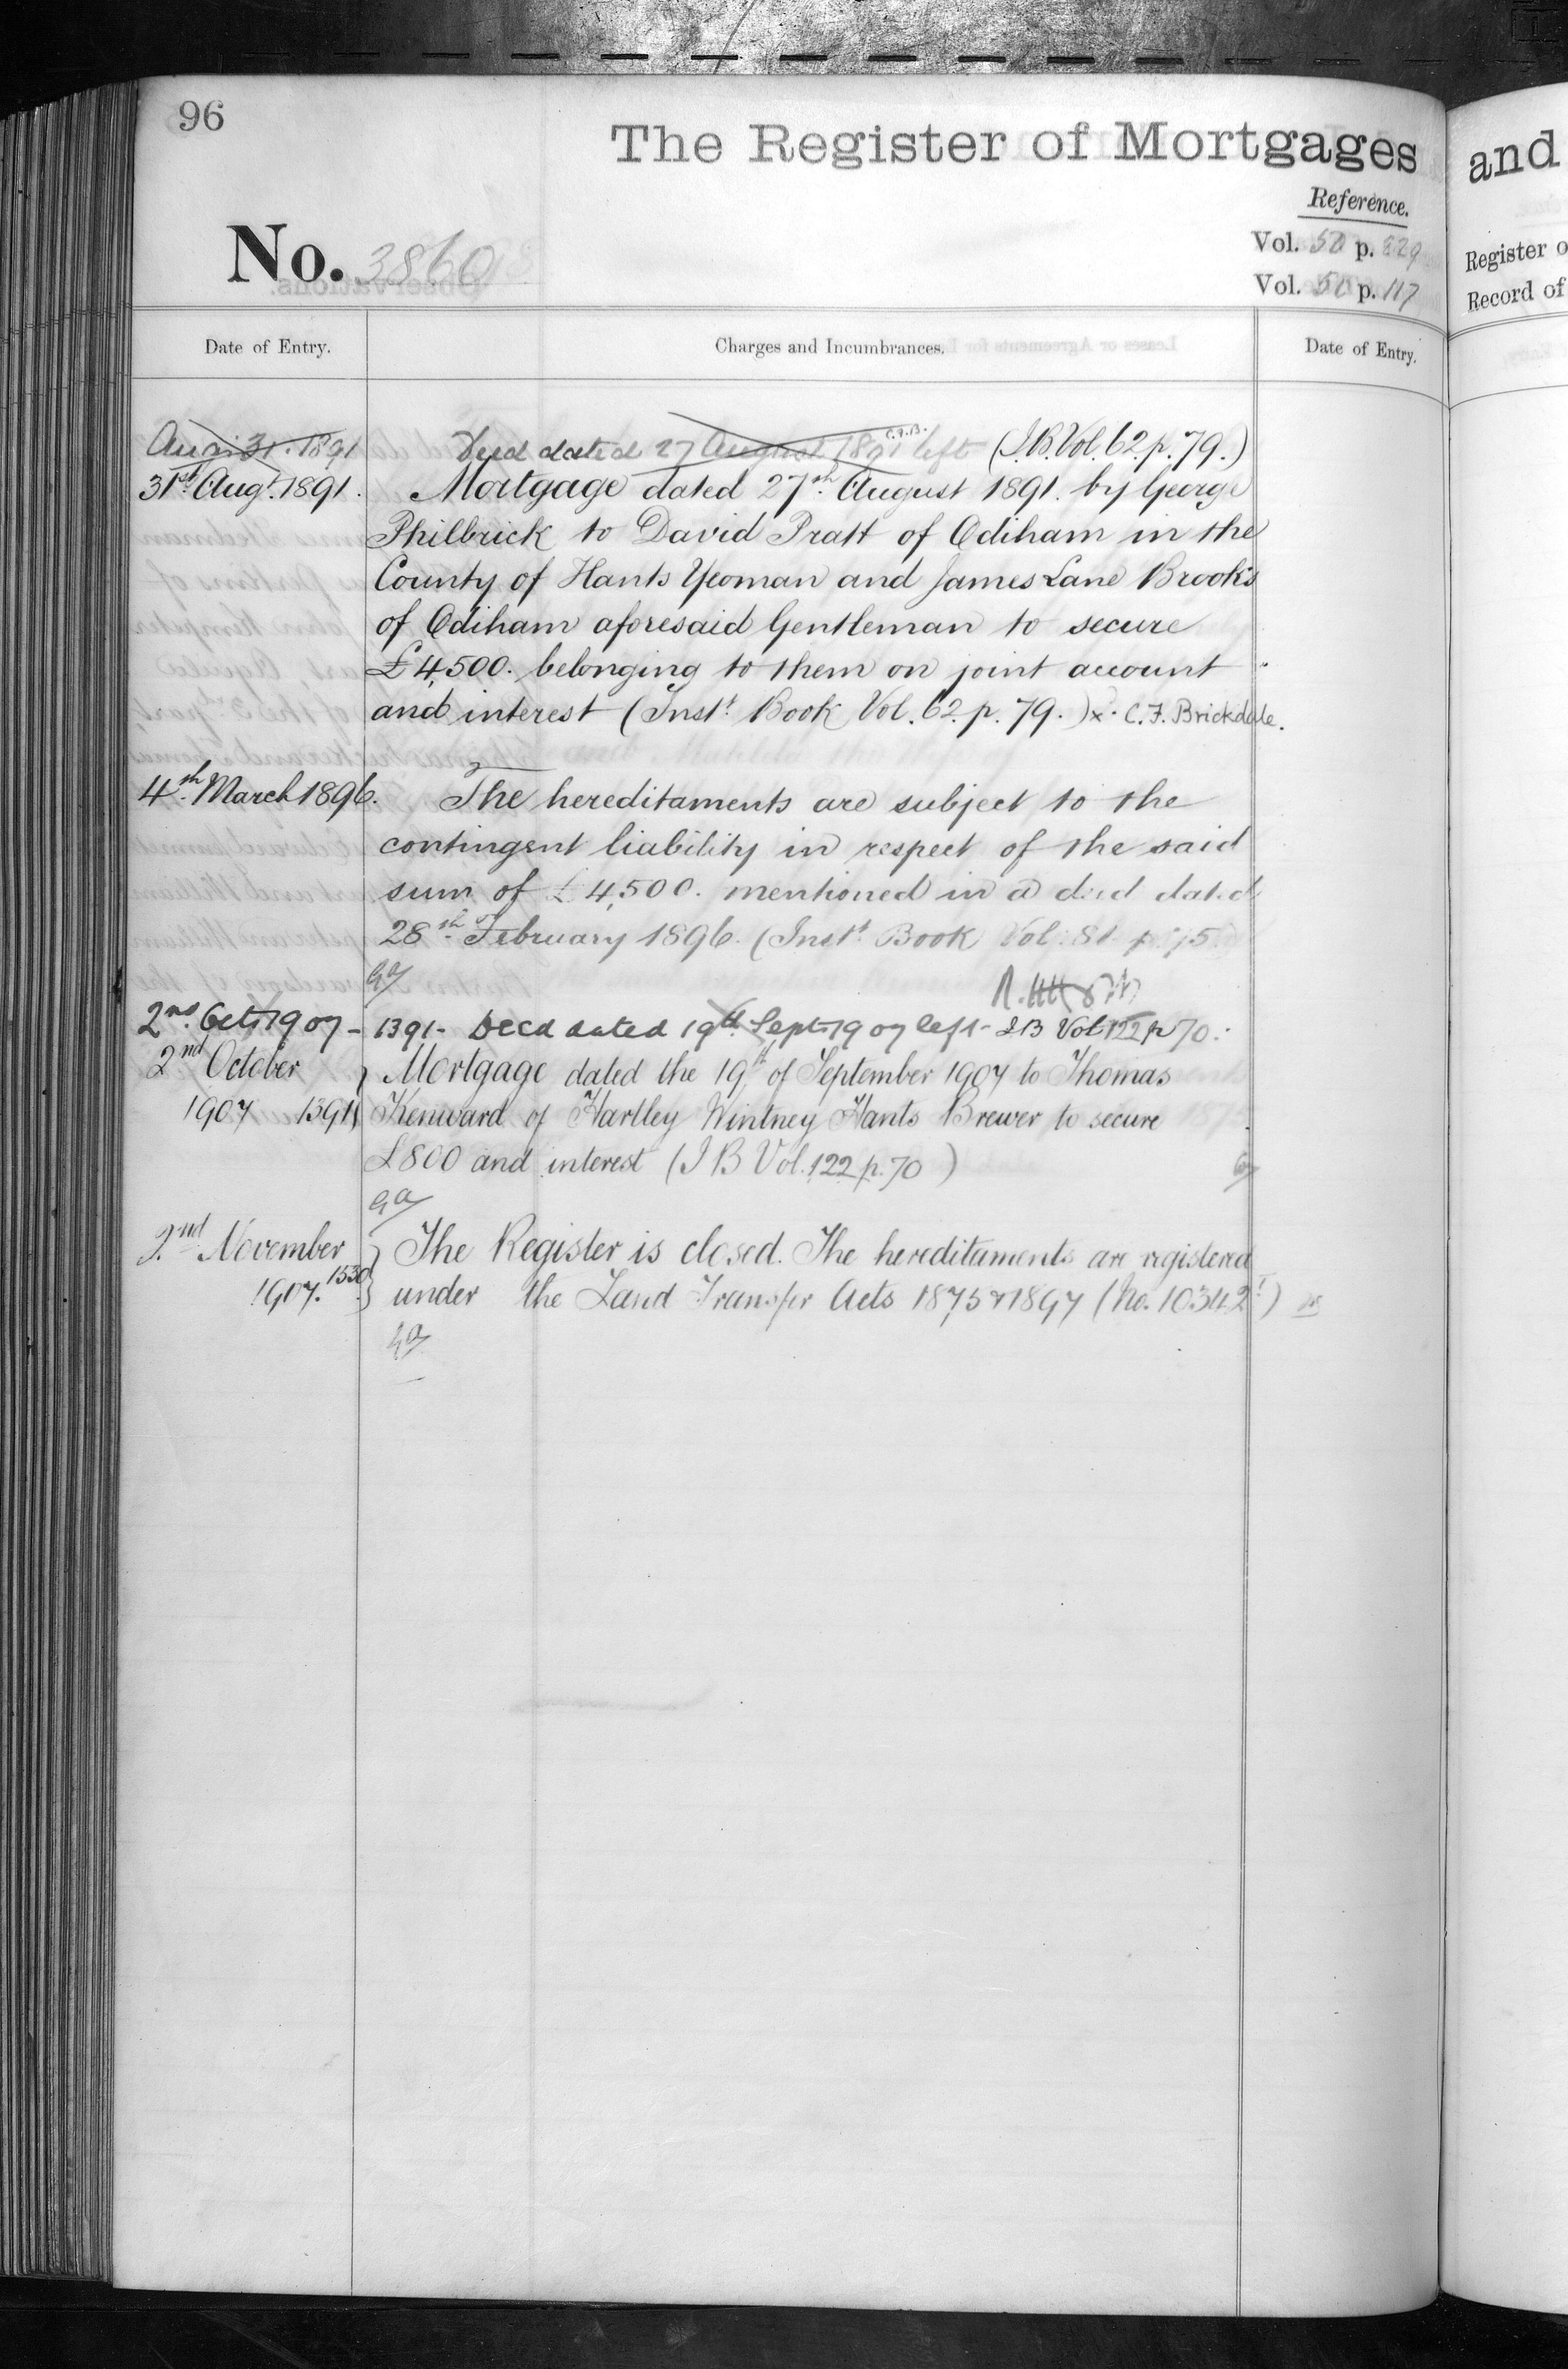 96
The Register of Mortgages
and
Reference.
No. 3860
Vol. 50 p. 229
Vol. 50 p. 117
Register o
Record of
Date of Entry.
Charges and Incumbrances.
Date of Entry.
Aug: 31. 1891 Deed dated 27 August 1891 left C.F.B. (I.B. Vol. 62. p. 79.)
31st Augt. 1891. Mortgage dated 27th August 1891. by George
Philbrick to David Pratt of Odiham in the
County of Hants Yeoman and James Lane Brooks
of Odiham aforesaid Gentleman to secure
£4,500. belonging to them on joint account
and interest (Instt. Book Vol. 62. p. 79.) x. C.F. Brickdale.
4th March 1896. The hereditaments are subject to the
contingent liability in respect of the said
sum of £4,500. mentioned in a deed dated
28th February 1896. (Instt. Book Vol: 81 p. 75
2nd Oct. 1907 - 1391 - Deed dated 19th Sept. 1907 left - I B Vol 122 p 70.
2nd October Mortgage dated the 19th of September 1907 to Thomas
1907 1391 Kenward of Hartley Wintney Hants Brewer to secure
£800 and interest (I B Vol. 122 p. 70)
2nd November The Register is closed. The hereditaments are registered
1907. 1530 under the Land Transfer Acts 1875 & 1897 (No. 103422)